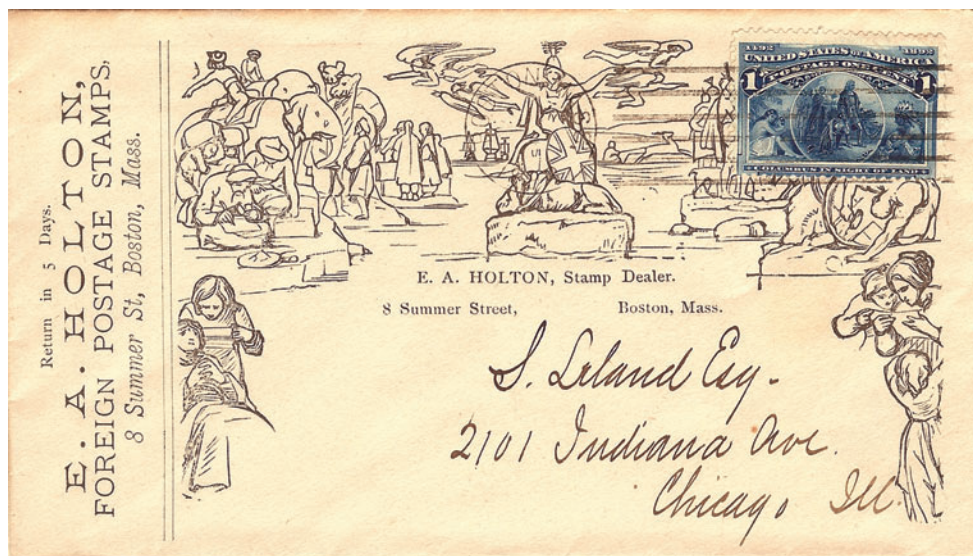 Return in 5 Days.
E. A. HOLTON,
FOREIGN POSTAGE STAMPS,
8 Summer St, Boston, Mass.
1492 1892
UNITED STATES OF AMERICA
POSTAGE ONE CENT
1 1
COLUMBUS IN SIGHT OF LAND
E. A. HOLTON, Stamp Dealer.
8 Summer Street, Boston, Mass.
S. Leland Esq.
2101 Indiana Ave.
Chicago Ill.